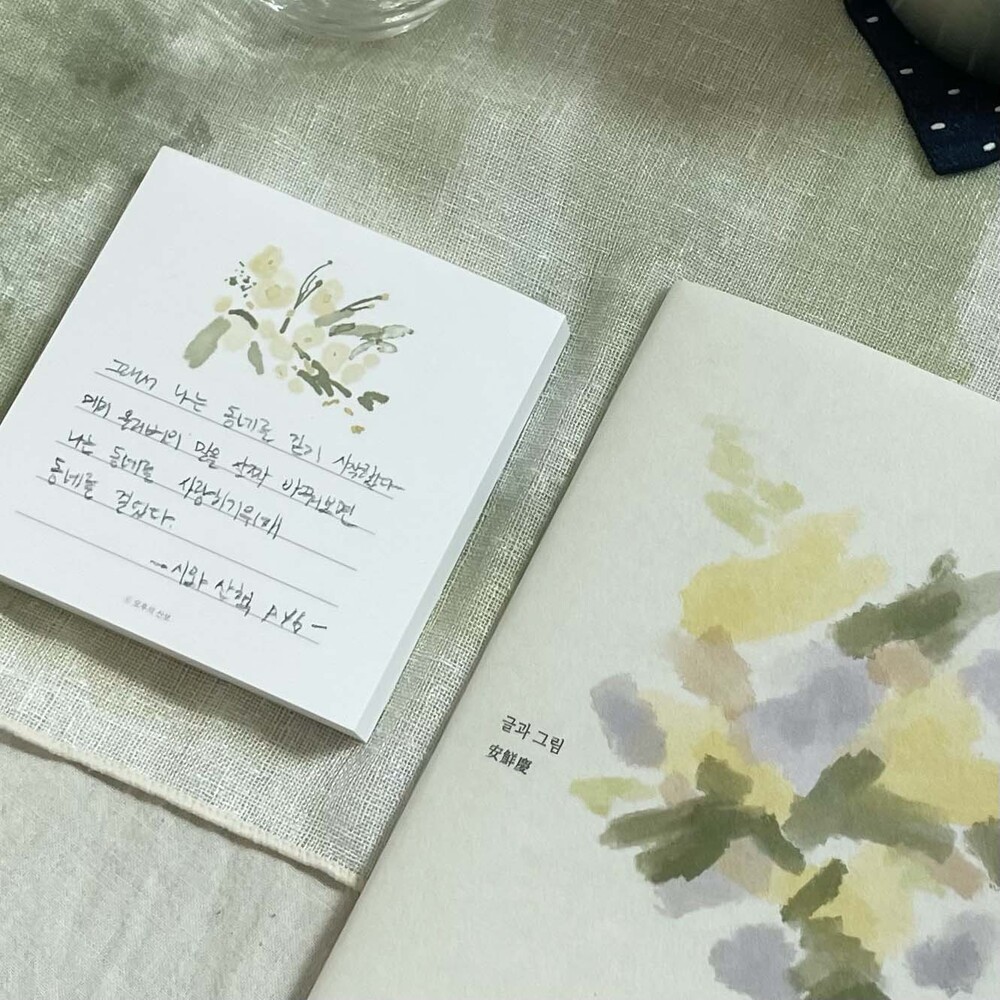 그래서 나는 동네를 걷기 시작했다
메리 올리버의 말을 살짝 바꿔보면
나는 동네를 사랑하기위해
동네를 걸었다.
—시와 산책 P46—
© 오후의 산보
글과 그림
安鮮慶